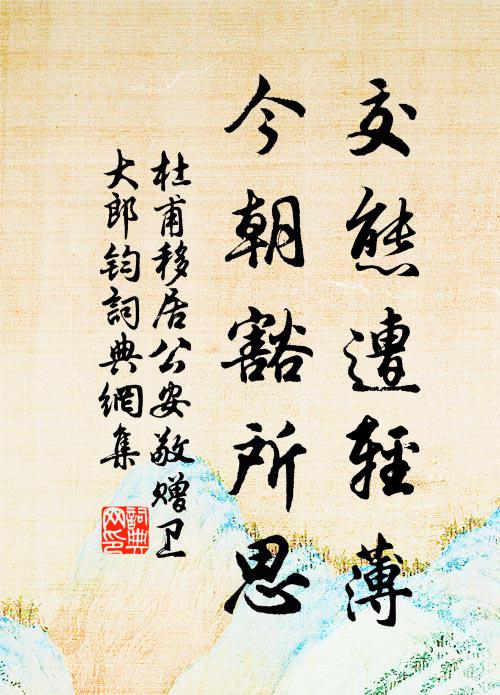 交態遭輕薄
今朝豁所思
杜甫移居公安敬赠卫
大郎钧詞典網集
詞典
网印